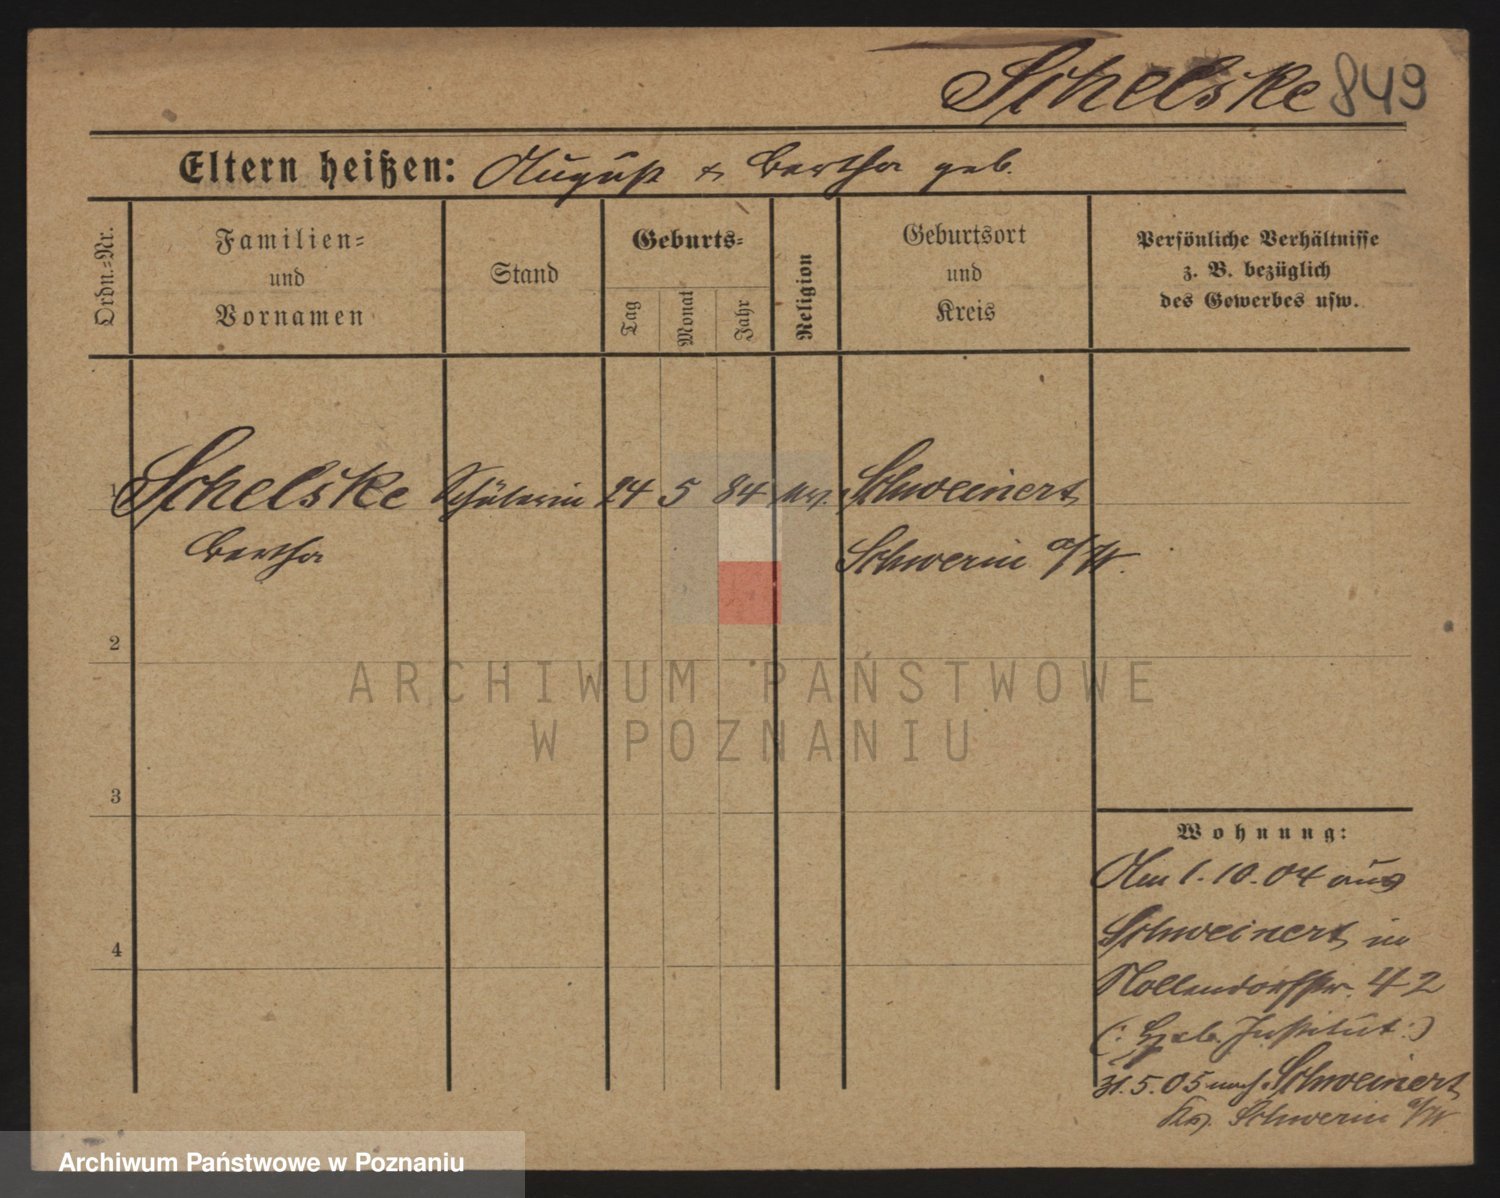 Schelske 849
Eltern heißen: August & Bertha geb.
Ordn.=Nr.
Familien=
und
Vornamen
Stand
Geburts=
Tag
Monat
Jahr
Religion
Geburtsort
und
Kreis
Persönliche Verhältnisse
z. B. bezüglich
des Gewerbes usw.
1 Schelske Schülerin 24 5 84 Schweinert
Bertha Schwerin a/W.
2
ARCHIWUM PAŃSTWOWE
W POZNANIU
3
Wohnung:
Am 1.10.04 aus
Schweinert in
Nollendorfstr. 42
(: Institut :)
31.5.05 nach Schweinert
Krs. Schwerin a/W
4
Archiwum Państwowe w Poznaniu